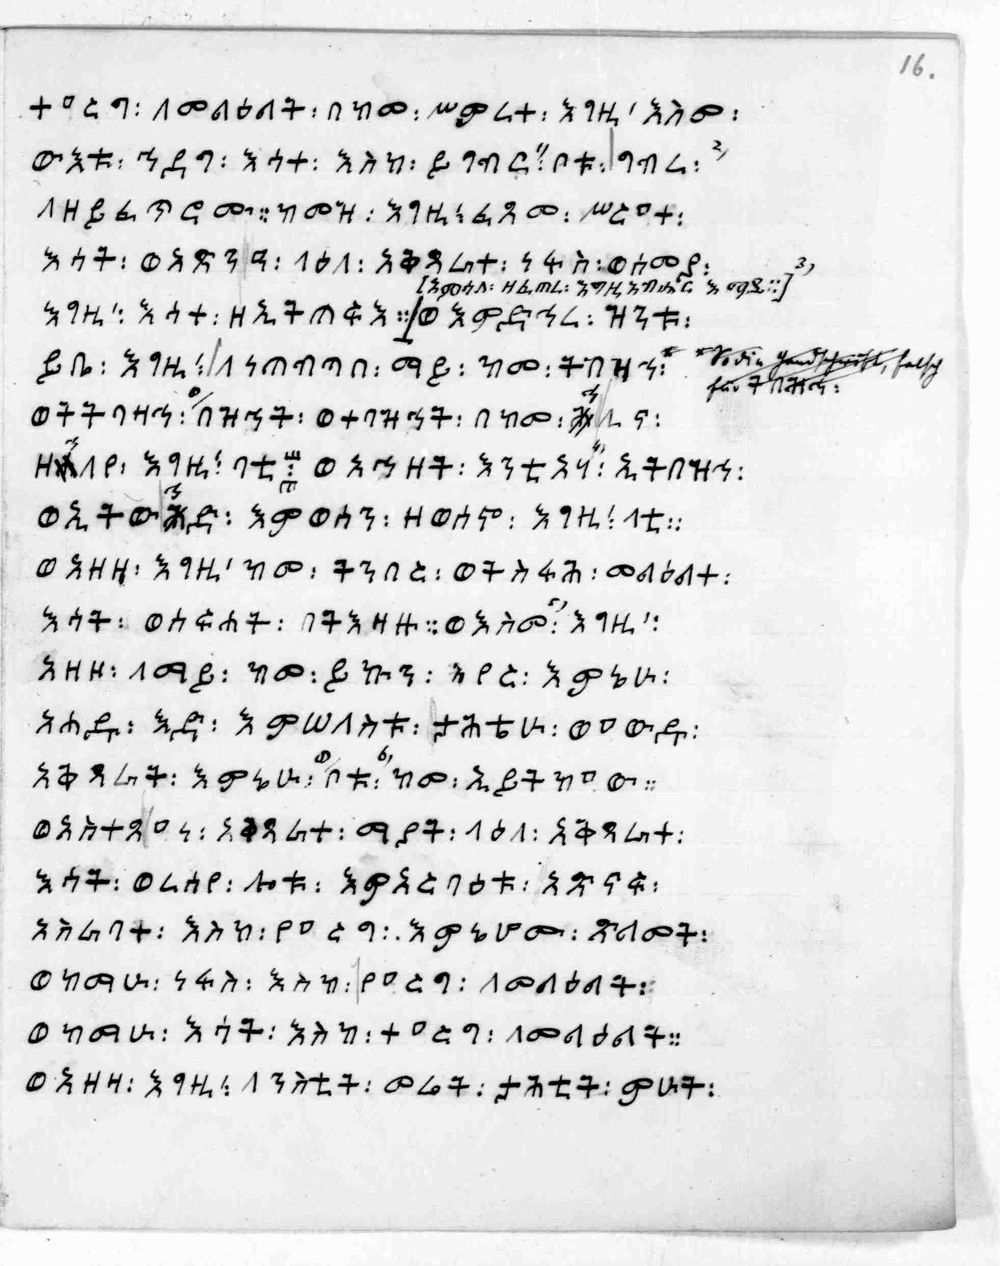 16.
ተዐርግ፡ ለመልዕልት፡ በከመ፡ ሥምረተ፡ እግዚ' እስመ፡
ውእቱ፡ ኀደገ፡ እሳተ፡ እስከ፡ ይገብር፡ ቦቱ፡ ግብረ፡ 2)
ለዘይፈጥሮሙ። ከመዝ፡ እግዚ፡ ፈጸመ፡ ሥርዐተ፡
እሳት፡ ወአጽንዓ፡ ላዕለ፡ አቅጻረተ፡ ነፋስ፡ ወሰመያ፡ 3)
[አምሳለ፡ ዘፈጠረ፡ እግዚአብሔር፡
እግዚ'፡ እሳተ፡ ዘኢትጠፍእ። ወእምድኅረ፡ ዝንቱ፡
ይቤ፡ እግዚ፡ ለነጠብጣበ፡ ማይ፡ ከመ፡ ትበዝኅ፡
ወትትባዛኅ፡ በዝኅት፡ ወተባዝኅት፡ በከመ፡
እግዚ፡ ባቲ። ወአኀዘት፡ እንቲአሃ፡ ኢትበዝኅ፡
እምወሰን፡ ዘወሰኖ፡ እግዚ፡ ላቲ።
ወአዘዛ፡ እግዚ' ከመ፡ ትንበር፡ ወትስፋሕ፡ መልዕልተ፡
እሳት፡ ወሰፍሐት፡ በትእዛዙ። ወእስመ፡ 5) እግዚ'፡
አዘዘ፡ ለማይ፡ ከመ፡ ይኩን፡ አየር፡ እምኔሁ፡
አሐዱ፡ እድ፡ እምሠለስቱ፡ ታሕቴሁ፡ ወዐውዱ፡
አቅጻረት፡ እምኔሁ፡ ቦቱ፡ 6) ከመ፡ ኢይትከዐው።
ወአስተጻዐነ፡ አቅጻረተ፡ ማያት፡ ላዕለ፡ አቅጻረተ፡
እሳት፡ ወረሰየ፡ ሎቱ፡ እምአርባዕቱ፡ አጽናፍ፡
አስራባተ፡ እስከ፡ የዐርግ፡ እምኔሆሙ፡ ጽልመት፡
ወከማሁ፡ ነፋስ፡ እስከ፡ የዐርግ፡ ለመልዕልት፡
ወከማሁ፡ እሳት፡ እስከ፡ ተዐርግ፡ ለመልዕልት።
ወአዘዛ፡ እግዚ፡ ለንስቲት፡ መሬት፡ ታሕቲት፡ ምህት፡